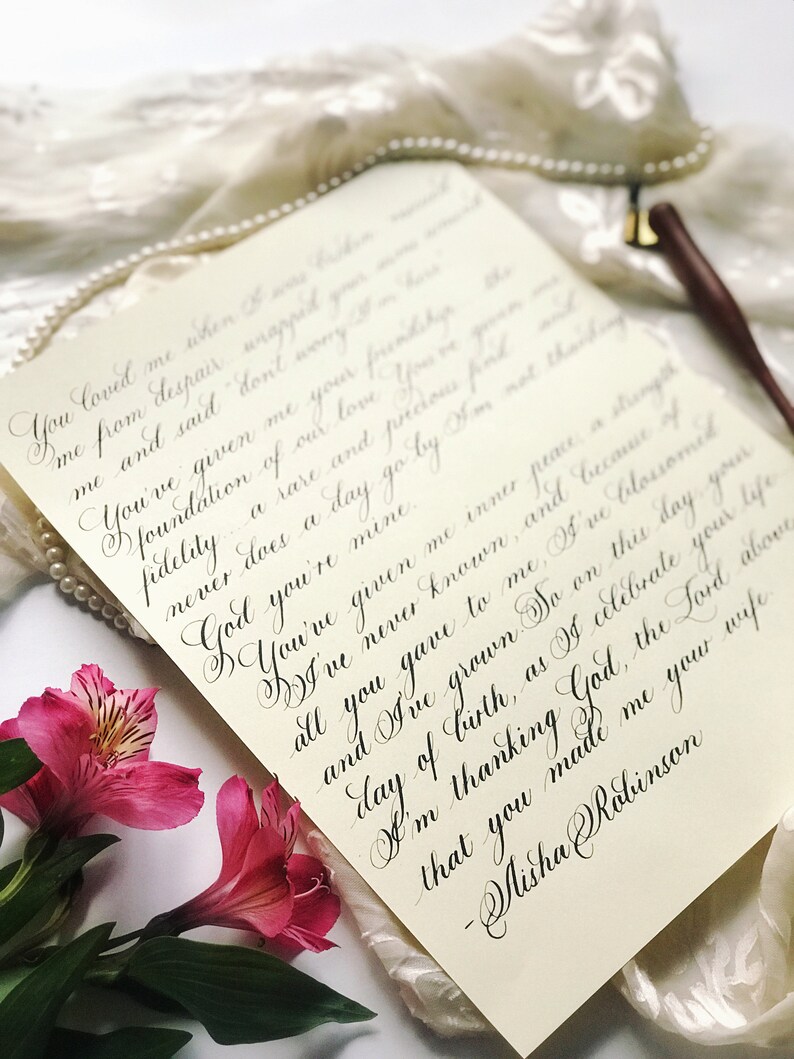 You loved me when I was broken rescued
me from despair wrapped your arms around
me and said "don't worry I'm here"
You've given me your friendship... the
foundation of our love You've given me
fidelity... a rare and precious find and
never does a day go by I'm not thanking
God you're mine.
You've given me inner peace, a strength
I've never known, and because of
all you gave to me, I've blossomed
and I've grown. So on this day, your
day of birth, as I celebrate your life
I'm thanking God, the Lord above
that you made me your wife.
-Aisha Robinson